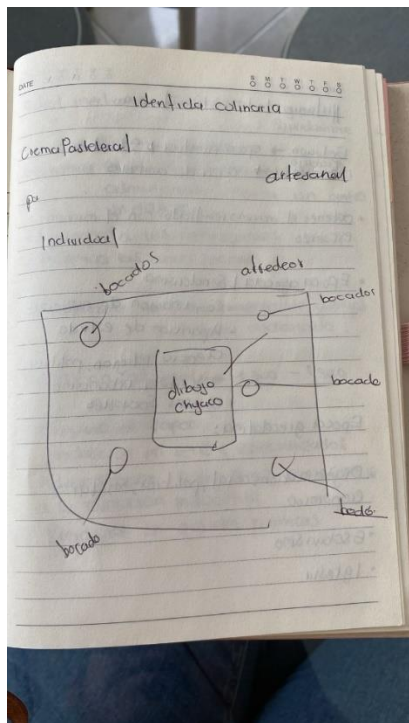 DATE
S M T W T F S
Identida culinaria
Crema Pasteleral
artesanal
pa
Individual
bocados
alrededor
bocados
dibujo
bocado
bocado